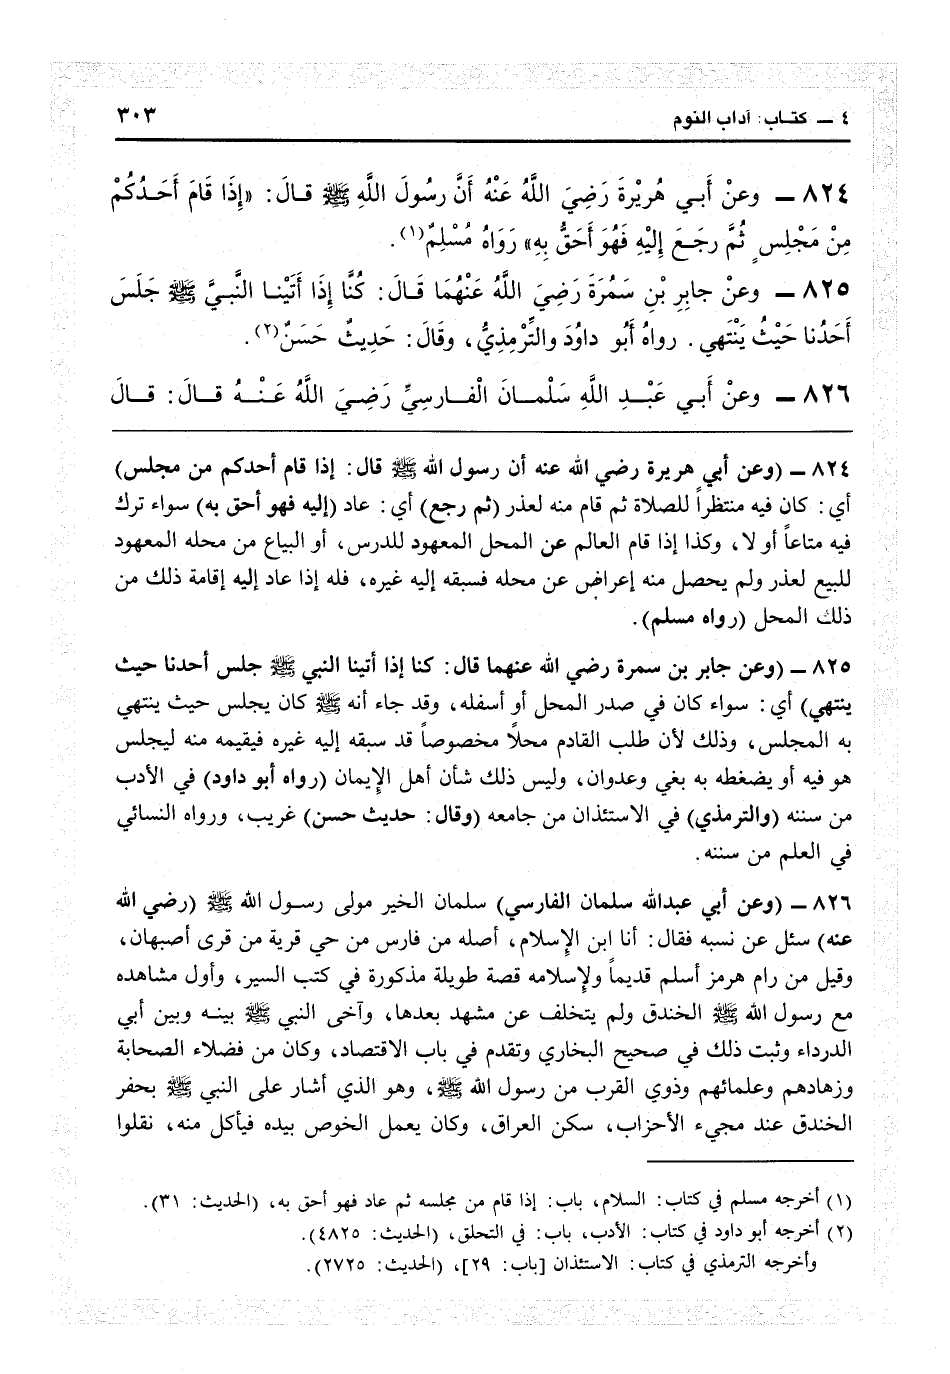 ٤ ـ كتـاب: آداب النوم
٣٠٣
٨٢٤ ـ وعنْ أَبـي هُريْرةَ رَضِيَ اللَّهُ عَنْهُ أَنَّ رسُولَ اللَّهِ ﷺ قـالَ: «إِذَا قَامَ أَحَـدُكُمْ
مِنْ مَجْلِسٍ ثُمَّ رجَـعَ إِلَيْهِ فَهُوَ أَحَقُّ بِهِ» رَوَاهُ مُسْلِمٌ(١).
٨٢٥ ـ وعنْ جابِرِ بْنِ سَمُرَةَ رَضِيَ اللَّهُ عَنْهُمَا قَـالَ: كُنَّا إِذَا أَتَيْنـا النَّبـيَّ ﷺ جَلَسَ
أَحَدُنا حَيْثُ يَنْتَهي. رواهُ أَبُو داوُدَ والتِّرْمِذِيُّ، وقَالَ: حَدِيثٌ حَسَنٌ(٢).
٨٢٦ ـ وعنْ أَبـي عَبْـدِ اللَّهِ سَلْمـانَ الْفـارسِيِّ رَضِـيَ اللَّهُ عَنْـهُ قـالَ: قـالَ
٨٢٤ ـ (وعن أبي هريرة رضي الله عنه أن رسول الله ﷺ قال: إذا قام أحدكم من مجلس)
أي: كان فيه منتظراً للصلاة ثم قام منه لعذر (ثم رجع) أي: عاد (إليه فهو أحق به) سواء ترك
فيه متاعاً أو لا، وكذا إذا قام العالم عن المحل المعهود للدرس، أو البياع من محله المعهود
للبيع لعذر ولم يحصل منه إعراض عن محله فسبقه إليه غيره، فله إذا عاد إليه إقامة ذلك من
ذلك المحل (رواه مسلم).
٨٢٥ ـ (وعن جابر بن سمرة رضي الله عنهما قال: كنا إذا أتينا النبي ﷺ جلس أحدنا حيث
ينتهي) أي: سواء كان في صدر المحل أو أسفله، وقد جاء أنه ﷺ كان يجلس حيث ينتهي
به المجلس، وذلك لأن طلب القادم محلاً مخصوصاً قد سبقه إليه غيره فيقيمه منه ليجلس
هو فيه أو يضغطه به بغي وعدوان، وليس ذلك شأن أهل الإيمان (رواه أبو داود) في الأدب
من سننه (والترمذي) في الاستئذان من جامعه (وقال: حديث حسن) غريب، ورواه النسائي
في العلم من سننه.
٨٢٦ ـ (وعن أبي عبدالله سلمان الفارسي) سلمان الخير مولى رسـول الله ﷺ (رضي الله
عنه) سئل عن نسبه فقال: أنا ابن الإسلام، أصله من فارس من حي قرية من قرى أصبهان،
وقيل من رام هرمز أسلم قديماً ولإسلامه قصة طويلة مذكورة في كتب السير، وأول مشاهده
مع رسول الله ﷺ الخندق ولم يتخلف عن مشهد بعدها، وآخى النبي ﷺ بينـه وبين أبي
الدرداء وثبت ذلك في صحيح البخاري وتقدم في باب الاقتصاد، وكان من فضلاء الصحابة
وزهادهم وعلمائهم وذوي القرب من رسول الله ﷺ، وهو الذي أشار على النبي ﷺ بحفر
الخندق عند مجيء الأحزاب، سكن العراق، وكان يعمل الخوص بيده فيأكل منه، نقلوا
(١) أخرجه مسلم في كتاب: السلام، باب: إذا قام من مجلسه ثم عاد فهو أحق به، (الحديث: ٣١).
(٢) أخرجه أبو داود في كتاب: الأدب، باب: في التحلق، (الحديث: ٤٨٢٥).
وأخرجه الترمذي في كتاب: الاستئذان [باب: ٢٩]، (الحديث: ٢٧٢٥).